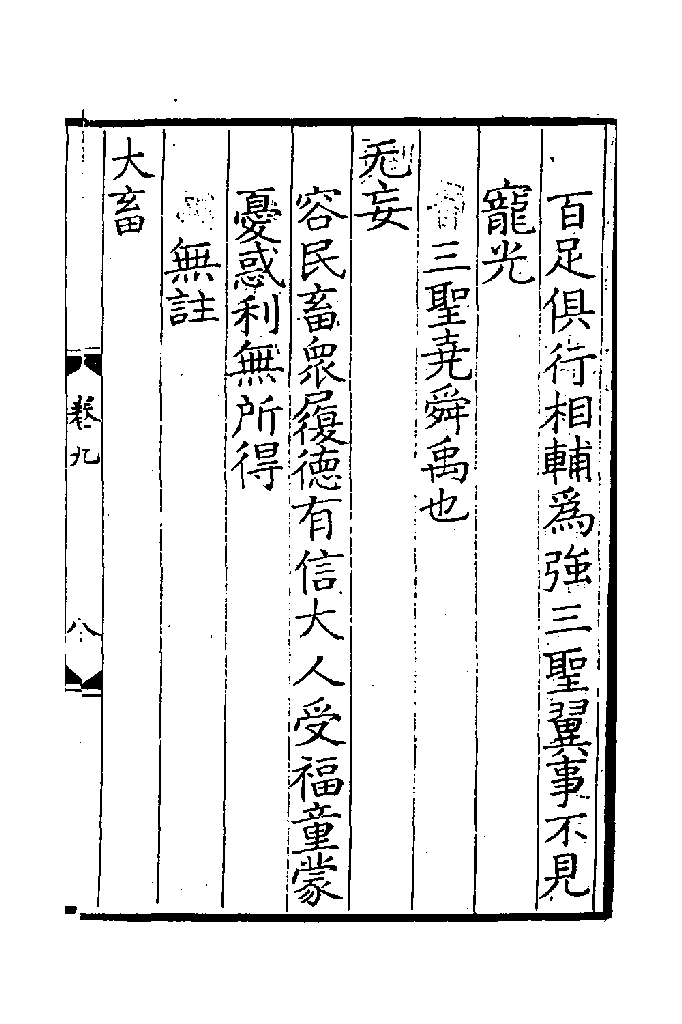 百足俱行相輔爲強三聖翼事不見
寵光
三聖堯舜禹也
无妄
容民畜衆履德有信大人受福童蒙
憂惑利無所得
無註
大畜
卷九
八